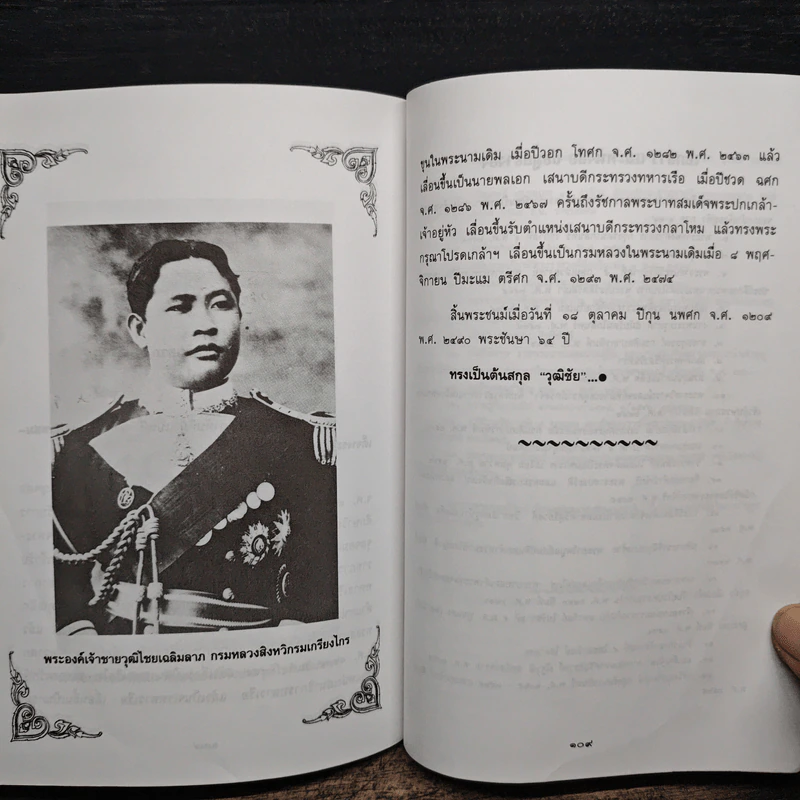 พระองค์เจ้าชายวุฒิไชยเฉลิมลาภ กรมหลวงสิงหวิกรมเกรียงไกร
ขุนในพระนามเดิม เมื่อปีวอก โทศก จ.ศ. ๑๒๘๒ พ.ศ. ๒๔๖๓ แล้ว
เลื่อนขึ้นเป็นนายพลเอก เสนาบดีกระทรวงทหารเรือ เมื่อปีชวด ฉศก
จ.ศ. ๑๒๘๖ พ.ศ. ๒๔๖๗ ครั้นถึงรัชกาลพระบาทสมเด็จพระปกเกล้า-
เจ้าอยู่หัว เลื่อนขึ้นรับตำแหน่งเสนาบดีกระทรวงกลาโหม แล้วทรงพระ
กรุณาโปรดเกล้าฯ เลื่อนขึ้นเป็นกรมหลวงในพระนามเดิมเมื่อ ๘ พฤศ-
จิกายน ปีมะแม ตรีศก จ.ศ. ๑๒๙๓ พ.ศ. ๒๔๗๔
สิ้นพระชนม์เมื่อวันที่ ๑๘ ตุลาคม ปีกุน นพศก จ.ศ. ๑๒๐๙
พ.ศ. ๒๔๙๐ พระชันษา ๖๔ ปี
ทรงเป็นต้นสกุล “วุฒิชัย”...●
~~~~~~~~~~
๑๐๙